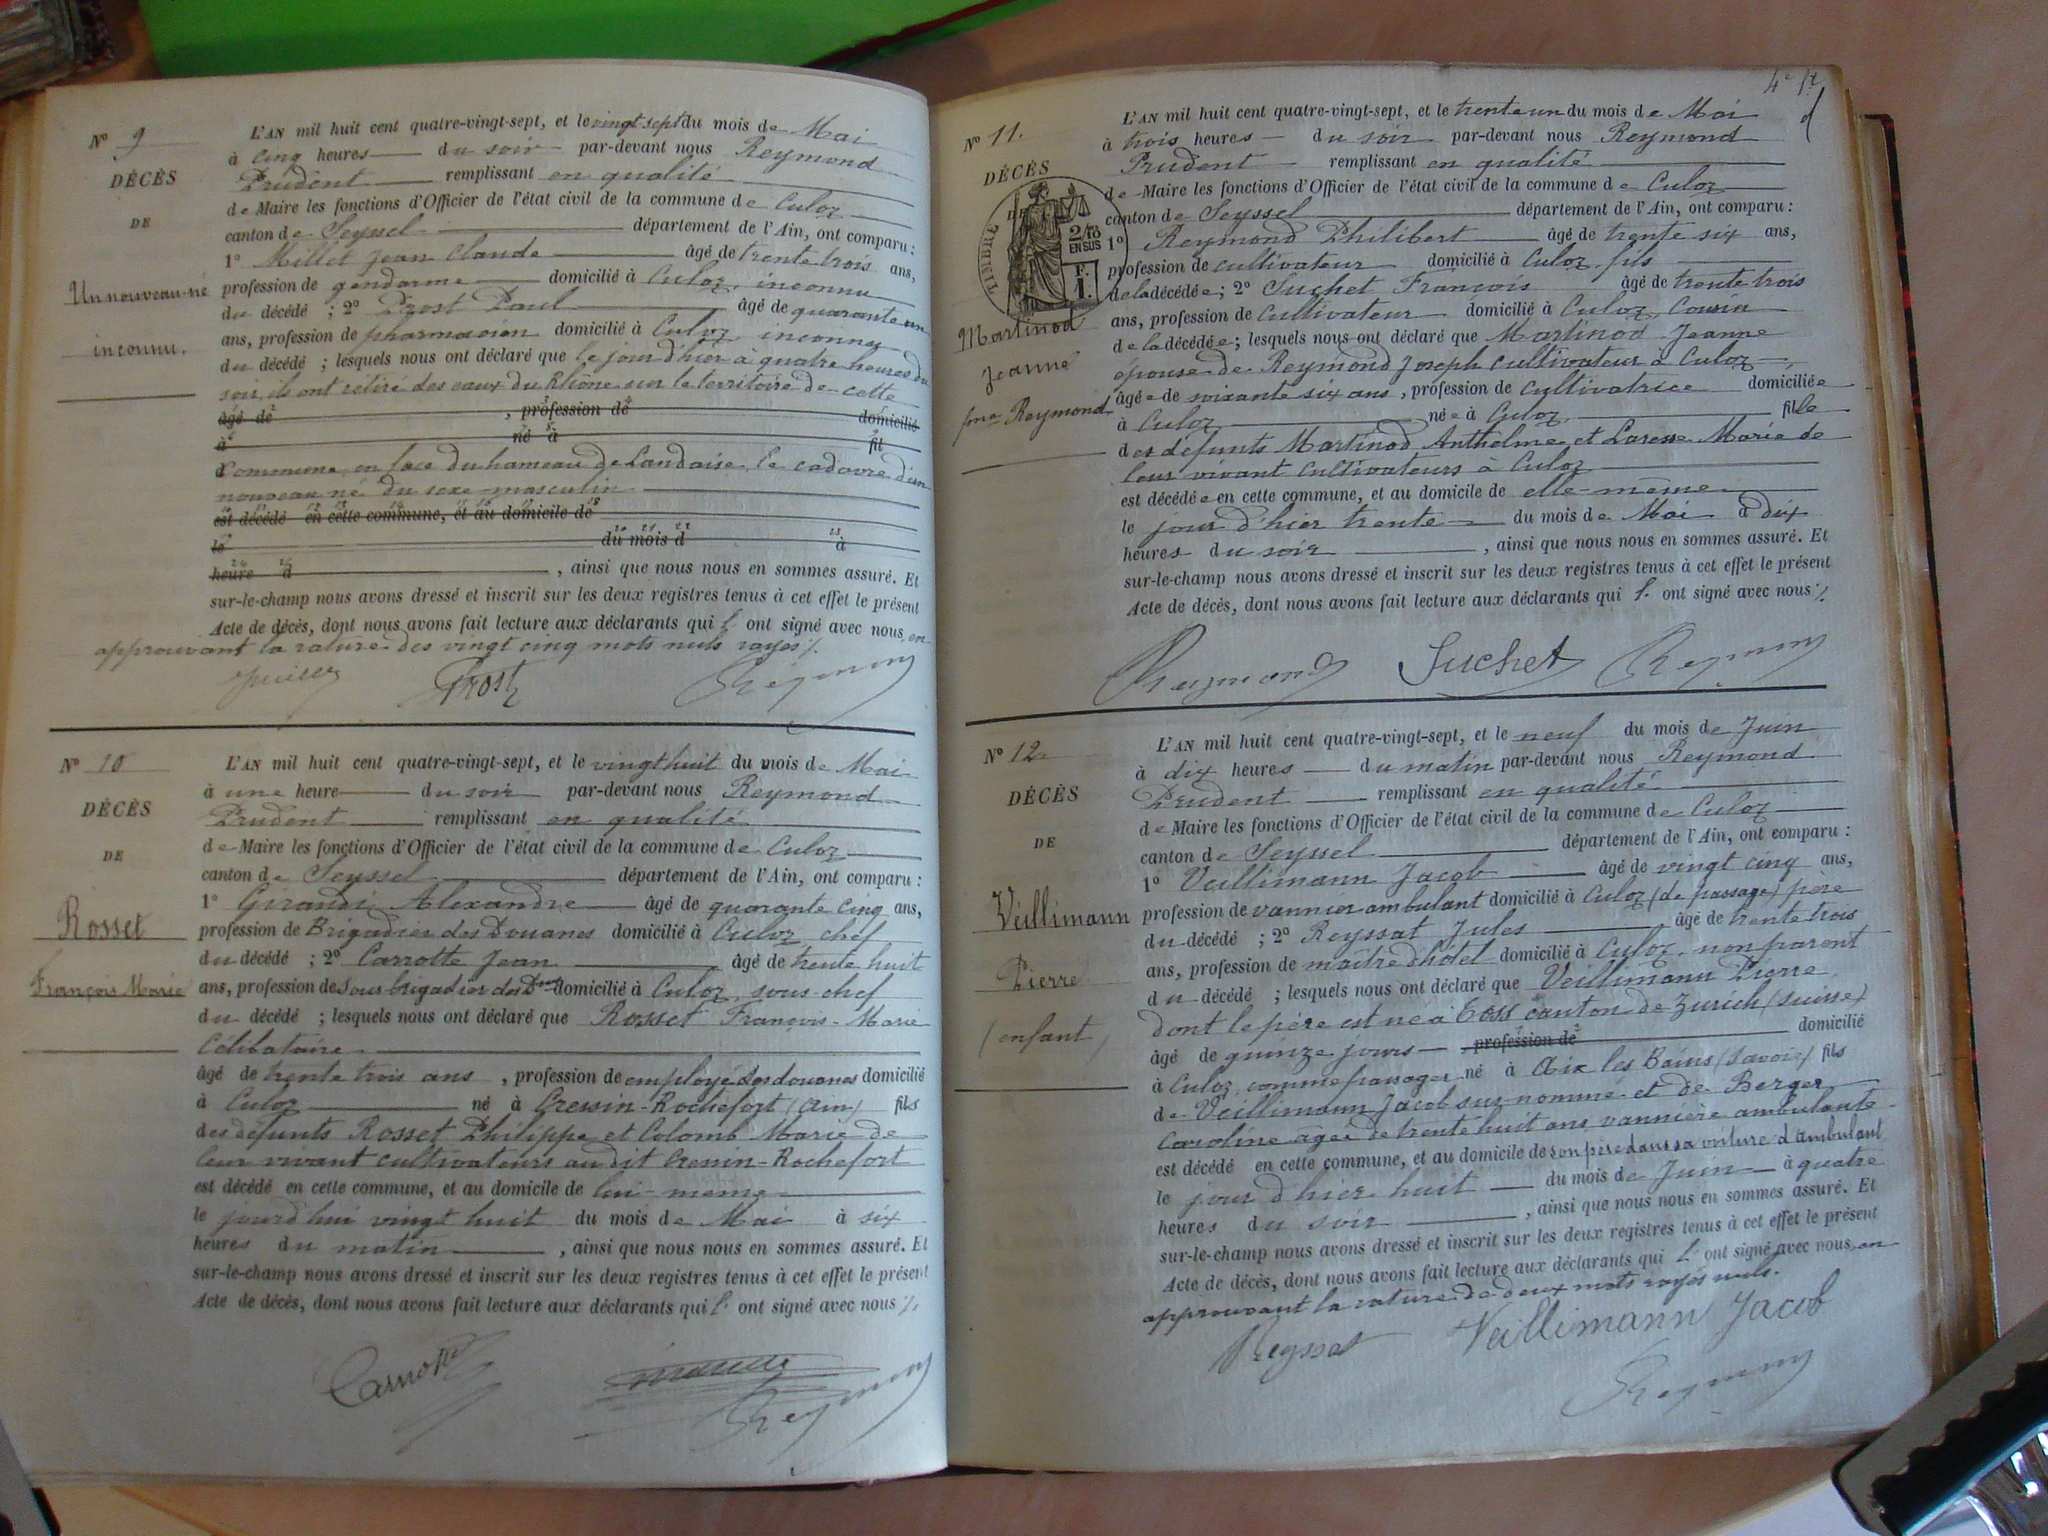 N° 9
DÉCÈS
DE
Un nouveau-né
inconnu.
L'AN mil huit cent quatre-vingt-sept, et le vingt sept du mois de Mai
à cinq heures du soir par-devant nous Reymond
Prudent remplissant en qualité
de Maire les fonctions d'Officier de l'état civil de la commune de Culoz
canton de Seyssel département de l'Ain, ont comparu :
1° Millet Jean Claude âgé de trente trois ans,
profession de gendarme domicilié à Culoz, inconnu
du décédé ; 2° Prost Paul âgé de quarante un
ans, profession de pharmacien domicilié à Culoz inconnu
du décédé ; lesquels nous ont déclaré que le jour d'hier à quatre heures du
soir, ils ont retiré des eaux du Rhône sur le territoire de cette
âgé de , profession de domicilié
à né à fil
Commune, en face du hameau de Landaise, le cadavre d'un
nouveau né du sexe masculin
est décédé en cette commune, et au domicile de
le du mois d à
heure d , ainsi que nous nous en sommes assuré. Et
sur-le-champ nous avons dressé et inscrit sur les deux registres tenus à cet effet le présent
Acte de décès, dont nous avons fait lecture aux déclarants qui l' ont signé avec nous, en
approuvant la rature des vingt cinq mots nuls rayés ⁒
Prost Reymond
N° 10
DÉCÈS
DE
Rosset
François Marie
L'AN mil huit cent quatre-vingt-sept, et le vingt huit du mois de Mai
à une heure du soir par-devant nous Reymond
Prudent remplissant en qualité
de Maire les fonctions d'Officier de l'état civil de la commune de Culoz
canton de Seyssel département de l'Ain, ont comparu :
1° Girandi Alexandre âgé de quarante cinq ans,
profession de Brigadier des Douanes domicilié à Culoz chef
du décédé ; 2° Carrotte Jean âgé de trente huit
ans, profession de Sous brigadier des Dnes domicilié à Culoz, sous-chef
du décédé ; lesquels nous ont déclaré que Rosset François-Marie
Célibataire
âgé de trente trois ans , profession de employé des douanes domicilié
à Culoz né à Cressin-Rochefort (Ain) fils
des défunts Rosset Philippe et Colomb Marie de
leur vivant cultivateurs au dit Cressin-Rochefort
est décédé en cette commune, et au domicile de lui-même
le jourd'hui vingt huit du mois de Mai à six
heures du matin , ainsi que nous nous en sommes assuré. Et
sur-le-champ nous avons dressé et inscrit sur les deux registres tenus à cet effet le présent
Acte de décès, dont nous avons fait lecture aux déclarants qui l' ont signé avec nous ⁒
Reymond
4e ft
N° 11.
DÉCÈS
DE
TIMBRE
2/10
EN SUS
F.
1.
Martinod
Jeanne
fme Reymond
L'AN mil huit cent quatre-vingt-sept, et le trente un du mois de Mai
à trois heures du soir par-devant nous Reymond
Prudent remplissant en qualité
de Maire les fonctions d'Officier de l'état civil de la commune de Culoz
canton de Seyssel département de l'Ain, ont comparu :
1° Reymond Philibert âgé de trente six ans,
profession de cultivateur domicilié à Culoz, fils
de la décédée ; 2° Suchet François âgé de trente trois
ans, profession de Cultivateur domicilié à Culoz, Cousin
de la décédée ; lesquels nous ont déclaré que Martinod Jeanne
épouse de Reymond Joseph cultivateur à Culoz
âgée de soixante six ans , profession de Cultivatrice domiciliée
à Culoz née à Culoz fille
des défunts Martinod Anthelme et Marie de
leur vivant cultivateurs à Culoz
est décédée en cette commune, et au domicile de elle-même
le jour d'hier trente du mois de Mai à dix
heures du soir , ainsi que nous nous en sommes assuré. Et
sur-le-champ nous avons dressé et inscrit sur les deux registres tenus à cet effet le présent
Acte de décès, dont nous avons fait lecture aux déclarants qui l' ont signé avec nous ⁒
Reymond Suchet Reymond
N° 12
DÉCÈS
DE
Veillimann
Pierre
(enfant)
L'AN mil huit cent quatre-vingt-sept, et le neuf du mois de Juin
à dix heures du matin par-devant nous Reymond
Prudent remplissant en qualité
de Maire les fonctions d'Officier de l'état civil de la commune de Culoz
canton de Seyssel département de l'Ain, ont comparu :
1° Veillimann Jacob âgé de vingt cinq ans,
profession de vannier ambulant domicilié à Culoz (de passage) père
du décédé ; 2° Reyssat Jules âgé de trente trois
ans, profession de maître d'hôtel domicilié à Culoz, non parent
du décédé ; lesquels nous ont déclaré que Veillimann Pierre
dont le père est né à Toss canton de Zurich (Suisse)
âgé de quinze jours , profession de domicilié
à Culoz, comme passager né à Aix les Bains (Savoie) fils
de Veillimann Jacob sus-nommé et de Berger
Caroline âgée de trente huit ans vannière ambulante
est décédé en cette commune, et au domicile de son père dans sa voiture d'ambulant
le jour d'hier huit du mois de Juin à quatre
heures du soir , ainsi que nous nous en sommes assuré. Et
sur-le-champ nous avons dressé et inscrit sur les deux registres tenus à cet effet le présent
Acte de décès, dont nous avons fait lecture aux déclarants qui l' ont signé avec nous, en
approuvant la rature de deux mots rayés nuls.
Reyssat Veillimann Jacob
Reymond